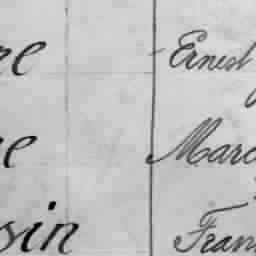 re Ernest
e Marc
sin Fran